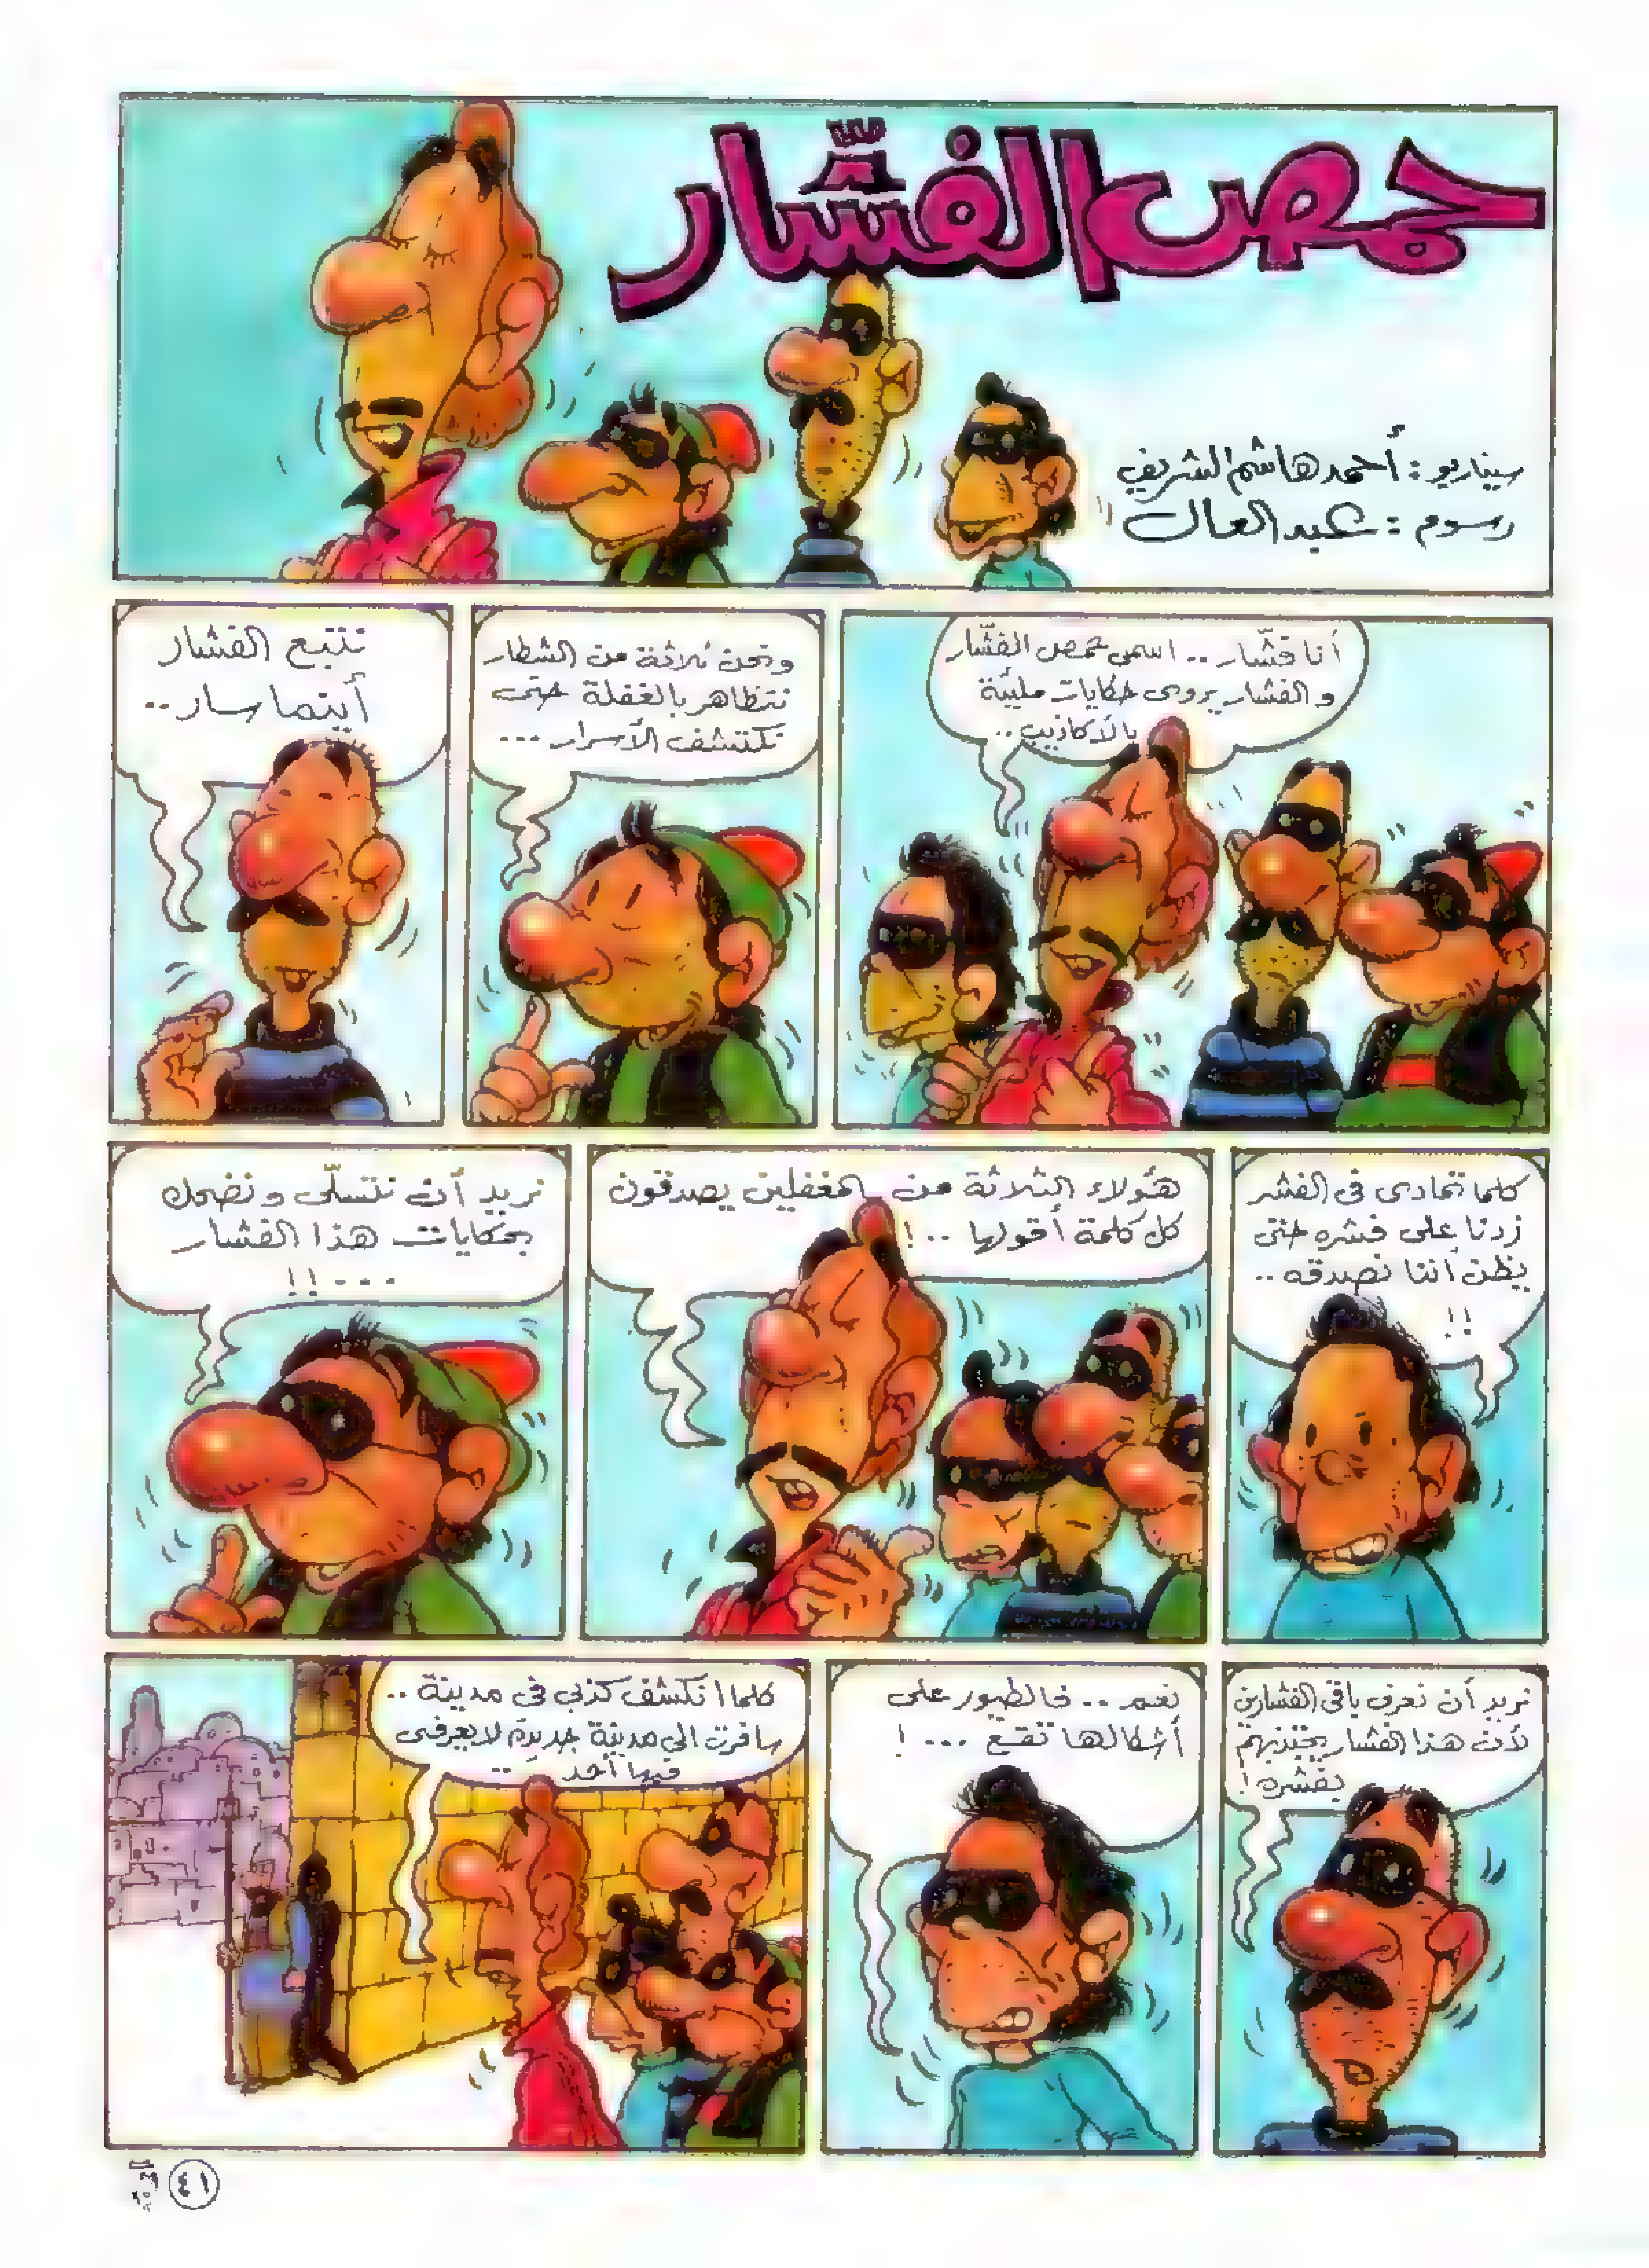 حمص الفشّار
سيناريو : أحمد هاشم الشريف
رسوم : عبد العال
أنا فشّار .. اسمى حمص الفشّار
والفشار يروى حكايات مليئة
بالأكاذيب ..
ونحن ثلاثة من الشطار
نتظاهر بالغفلة حتى
نكتشف الأسرار ...
نتبع الفشار
أينما سار ..
كلما تمادى فى الفشر
زدنا على فشره حتى
يظن أننا نصدقه ..
!!
هؤلاء الثلاثة من المغفلين يصدقون
كل كلمة أقولها .. !
نريد أن نتسلّى ونضحك
بحكايات هذا الفشار
... !!
نريد أن نعرف باقى الفشارين
لأن هذا الفشار يجتذبهم
بفشره !
نعم .. فالطيور على
أشكالها تقع ... !
كلما انكشف كذبى فى مدينة ..
سافرت الى مدينة جديدة لا يعرفنى
فيها أحد ..
٤١